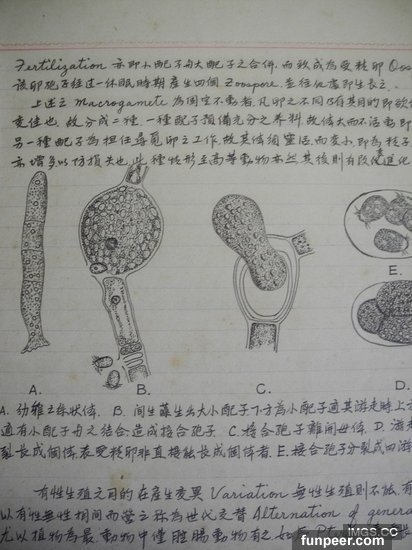 Fertilization 亦即小配子与大配子之合併，而致成為受精卵 Oos
該卵孢子经过一休眠時期產生四個 Zoospore
上述之 macrogamete 為固定不動者，凡卵之不同乃有其目的即欲
也，故分成二種，一種配子預備充分之养料，故体大而不活動即
另一種配子為担任尋覓卵之工作，故其体須靈活，而变小，即為精子
亦增多以防損失也，此種情形至高等動物亦然其後則有改進化
A. B. C. D. E.
A. 幼稚之絲狀体. B. 间生藻生出大小配子下方為小配子適其游走時上方
適有小配子与之结合，造成接合孢子. C. 接合孢子離開母体. D. 游走
裂长成個体，表受精卵非直接能長成個体者. E. 接合孢子分裂成四游
有性生殖之目的在產生变異 Variation 無性生殖則不能，有
以有性無性相间而營之称為世代交替 Alternation of genera
尤以植物為最，動物中僅腔腸動物有之如
IMGS.CC
funpeer.com